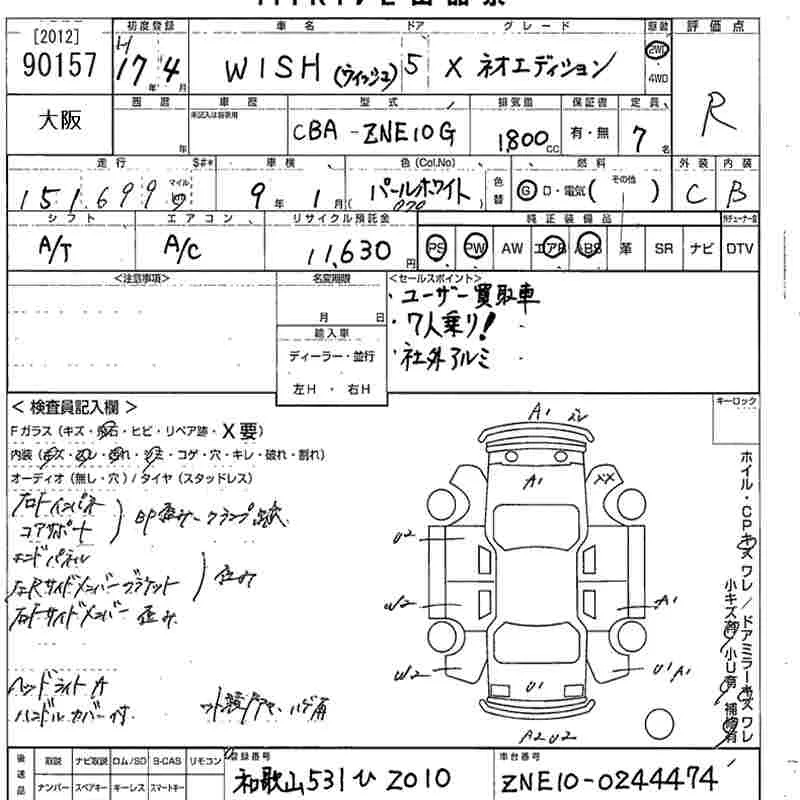 [2012]
90157
大阪
初度登録 車名 ドア グレード 駆動 評価点
H17年4月 WISH (ウィッシュ) 5 X ネオエディション 2WD 4WD R
西暦 車歴 型式 排気量 保証書 定員
年 未記入は自家用 CBA-ZNE10G 1800cc 有・無 7名
走行 $#* 車検 色(Col.No) 色替 燃料 外装 内装
151,699 マイル km 9年1月 パールホワイト ( 070 ) G D・電気 ( その他 ) C B
シフト エアコン リサイクル預託金 純正装備品
A/T A/C 11,630円 PS PW AW エアB ABS 革 SR ナビ DTV
<注意事項> 名変期限 <セールスポイント>
月 日
・ユーザー買取車
・7人乗り!
・社外アルミ
輸入車
ディーラー・並行
左H・右H
<検査員記入欄>
キーロック
Fガラス(キズ・飛石・ヒビ・リペア跡・X要)
内装(キズ・スレ・汚れ・シミ・コゲ・穴・キレ・破れ・割れ)
オーディオ(無し・穴)/タイヤ(スタッドレス)
コアサポート
エンドパネル
歪み
ヘッドライトA
ハンドルカバー付
A1
A1 XX
U2
W2 A1
W2 U1 A1
U1
A2 U2
ホイル・CPキズ ワレ/ドアミラーキズ ワレ
小キズ有 小U有 補修有
後送品 取説 ナビ取説 ロム/SD B-CAS リモコン 登録番号 車台番号
ナンバー スペアキー キーレス スマートキー 和歌山531ひ2010 ZNE10-0244474